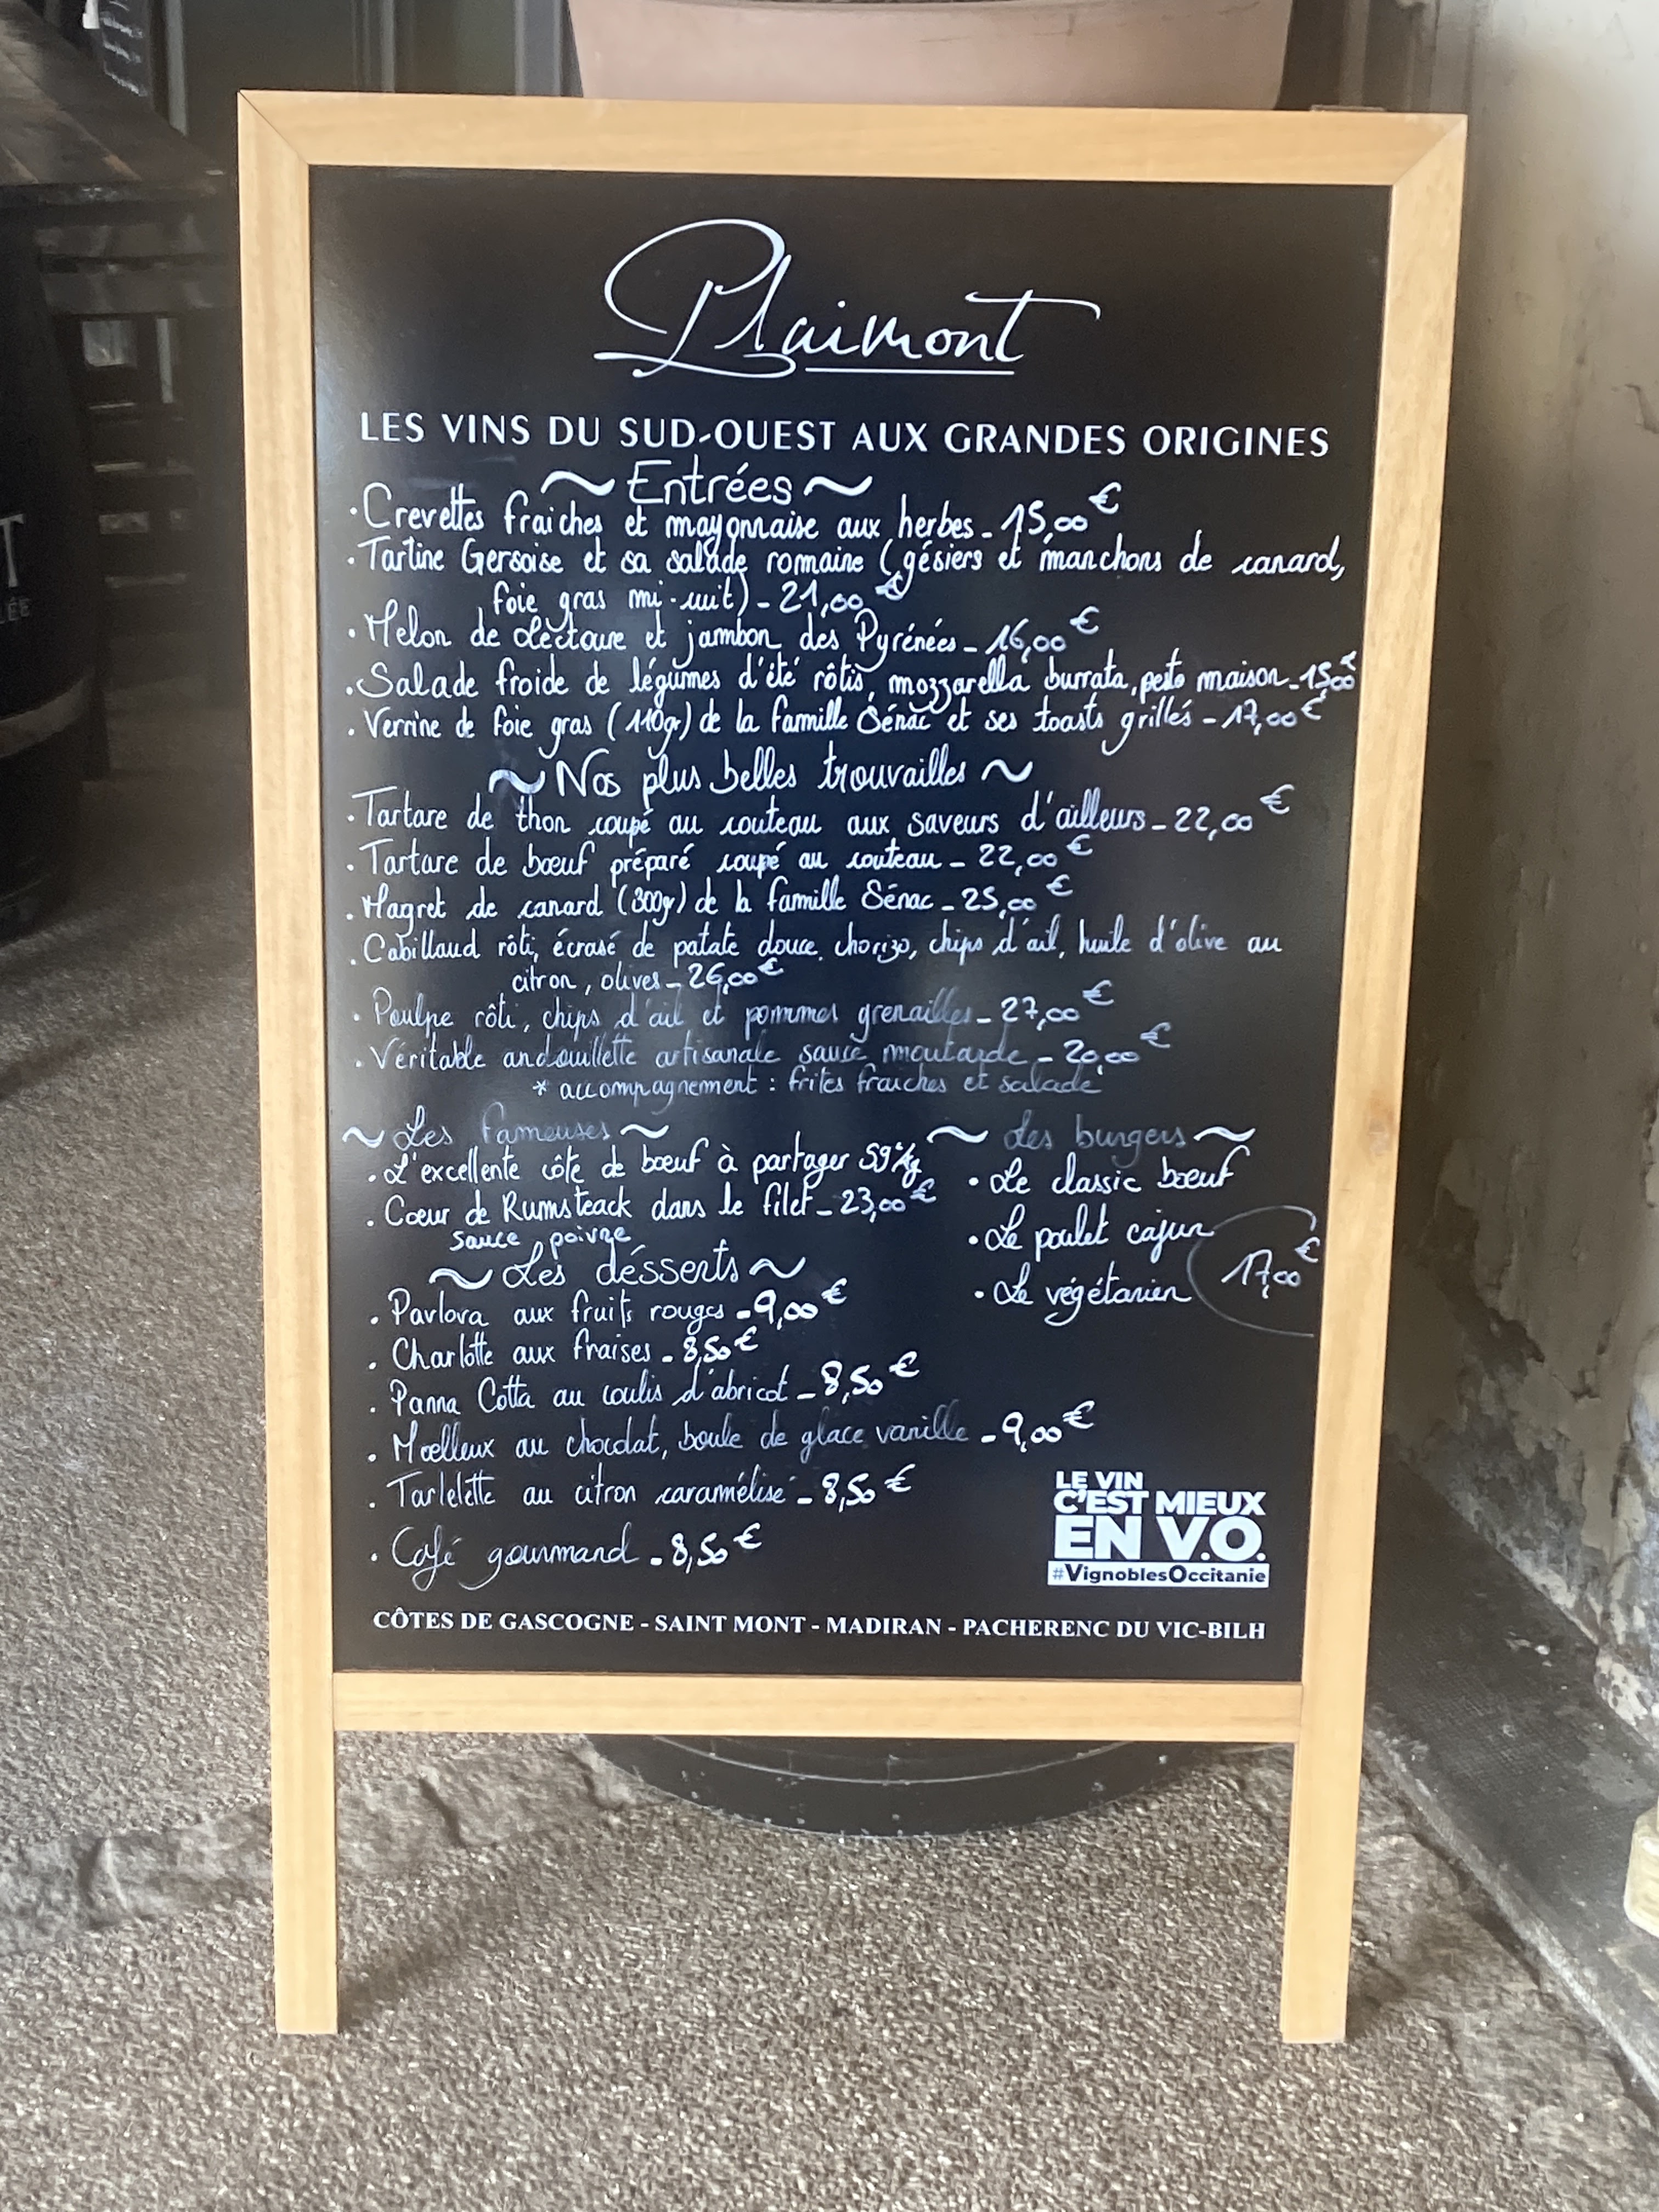 Plaimont
LES VINS DU SUD-OUEST AUX GRANDES ORIGINES
~ Entrées ~
· Crevettes fraiches et mayonnaise aux herbes - 15,00€
· Tartine Gersoise et sa salade romaine (gésiers et manchons de canard,
foie gras mi-cuit) - 21,00€
· Melon de Lectoure et jambon des Pyrénées - 16,00€
· Salade froide de légumes d'été rôtis, mozzarella burrata, pesto maison - 15,00€
· Verrine de foie gras (110gr) de la famille Sénac et ses toasts grillés - 17,00€
~ Nos plus belles trouvailles ~
· Tartare de thon coupé au couteau aux saveurs d'ailleurs - 22,00€
· Tartare de bœuf préparé coupé au couteau - 22,00€
· Magret de canard (300gr) de la famille Sénac - 25,00€
· Cabillaud rôti, écrasé de patate douce, chorizo, chips d'ail, huile d'olive au
citron, olives - 26,00€
· Poulpe rôti, chips d'ail et pommes grenailles - 27,00€
· Véritable andouillette artisanale sauce moutarde - 20,00€
* accompagnement : frites fraiches et salade
~ Les fameuses ~
· L'excellente côte de bœuf à partager 59€/kg
· Coeur de Rumsteack dans le filet - 23,00€
sauce poivre
~ Les burgers ~
· Le classic bœuf
· Le poulet cajun
· Le végétarien
17,00€
~ Les desserts ~
· Pavlova aux fruits rouges - 9,00€
· Charlotte aux fraises - 8,50€
· Panna Cotta au coulis d'abricot - 8,50€
· Moelleux au chocolat, boule de glace vanille - 9,00€
· Tartelette au citron caramélisé - 8,50€
· Café gourmand - 8,50€
LE VIN
C'EST MIEUX
EN V.O.
#VignoblesOccitanie
CÔTES DE GASCOGNE - SAINT MONT - MADIRAN - PACHERENC DU VIC-BILH